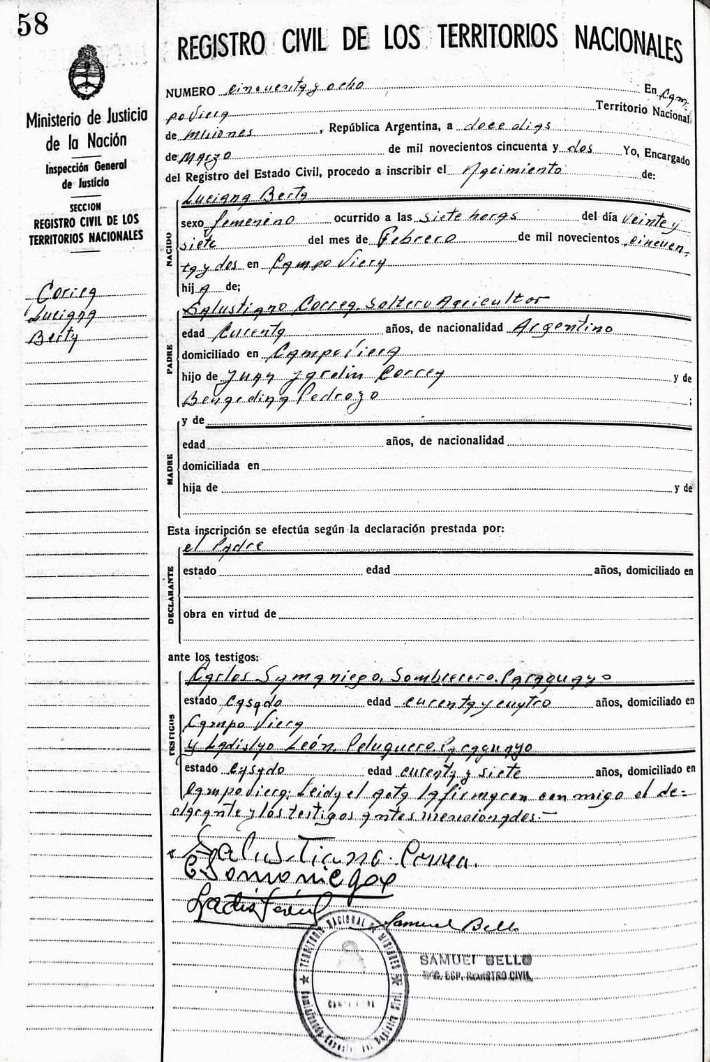 58
REGISTRO CIVIL DE LOS TERRITORIOS NACIONALES
Ministerio de Justicia
de la Nación
Inspección General
de Justicia
SECCION
REGISTRO CIVIL DE LOS
TERRITORIOS NACIONALES
Correa
Luciana
Berta
NUMERO cincuenta y ocho En Cam-
po Viera Territorio Nacional
de Misiones, República Argentina, a doce dias
de Marzo de mil novecientos cincuenta y dos Yo, Encargado
del Registro del Estado Civil, procedo a inscribir el Nacimiento de:
NACIDO
Luciana Berta
sexo femenino ocurrido a las siete horas del día veinte y
siete del mes de Febrero de mil novecientos cincuen-
ta y dos en Campo Viera
hija de;
PADRE
Salustiano Correa, Soltero Agricultor
edad curenta años, de nacionalidad Argentino
domiciliado en Campo Viera
hijo de Juan Jardin Correa y de
Pedrozo ;
MADRE
y de
edad años, de nacionalidad
domiciliada en
hija de y de
Esta inscripción se efectúa según la declaración prestada por:
DECLARANTE
el Padre
estado edad años, domiciliado en
obra en virtud de
ante los testigos:
TESTIGOS
Carlos Samaniego, Sombrerero, Paraguayo
estado Casado edad curenta y cuatro años, domiciliado en
Campo Viera
y Ladislao León, Peluquero, Paraguayo
estado Casado edad curenta y siete años, domiciliado en
Campo Viera; Leida el acta la firmaron con migo el de-
clarante y los testigos antes mencionados:-
Salustiano Correa.
CSamaniego
Samuel Bello
SAMUEL BELLO
ENC. ESP. REGISTRO CIVIL
TERRITORIO NACIONAL DE MISIONES